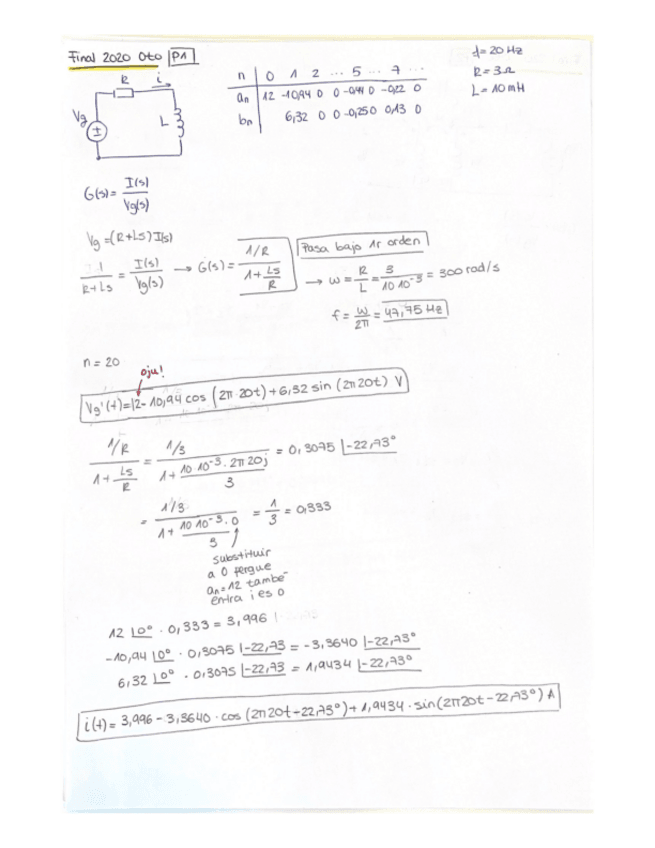 Final 2020 Oto P1
f = 20 Hz
R = 3Ω
L = 10 mH
n 0 1 2 ... 5 ... 7 ...
an 12 -10,94 0 0 -0,41 0 -0,22 0
bn 6,32 0 0 -0,25 0 0,13 0
R i
Vg L
G(s) = I(s) / Vg(s)
Vg = (R+Ls) I(s)
1 / R+Ls = I(s) / Vg(s) → G(s) = 1/R / 1 + Ls/R
Pasa bajo 1r orden
→ ω = R/L = 3 / 10 10⁻³ = 300 rad/s
f = ω/2π = 47,75 Hz
n = 20
oju!
Vg'(t) = 12 - 10,94 cos (2π 20t) + 6,32 sin (2π 20t) V
1/R / 1 + Ls/R = 1/3 / 1 + 10 10⁻³ · 2π 20j / 3 = 0,3075 |-22,73°
= 1/3 / 1 + 10 10⁻³ · 0 / 3 = 1/3 = 0,333
substituir
a 0 perque
an = 12 també
entra i es 0
12 |0° · 0,333 = 3,996
-10,94 |0° · 0,3075 |-22,73 = -3,3640 |-22,73°
6,32 |0° · 0,3075 |-22,73 = 1,9434 |-22,73°
i(t) = 3,996 - 3,3640 · cos (2π20t - 22,73°) + 1,9434 · sin (2π20t - 22,73°) A